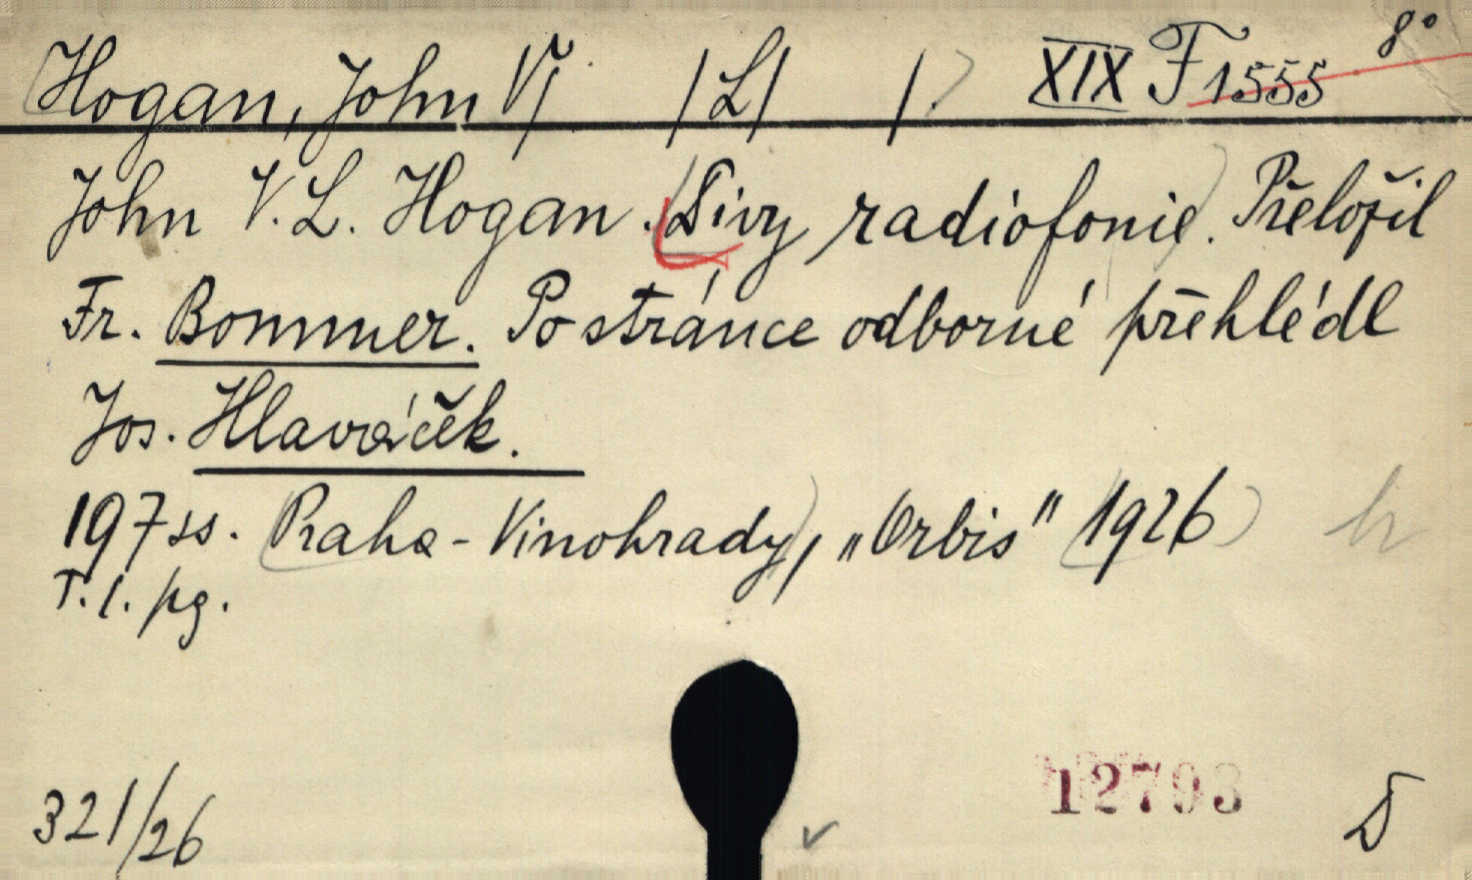 Hogan, John V/ /L/ /? XIX F 1555 8°
John V. L. Hogan. Divy radiofonie. Přeložil
Fr. Bommer. Po stránce odborné přehlédl
Jos. Hlaváček.
197 ss. Praha - Vinohrady, „Orbis" 1926
T. l. pg.
12793
321/26 D